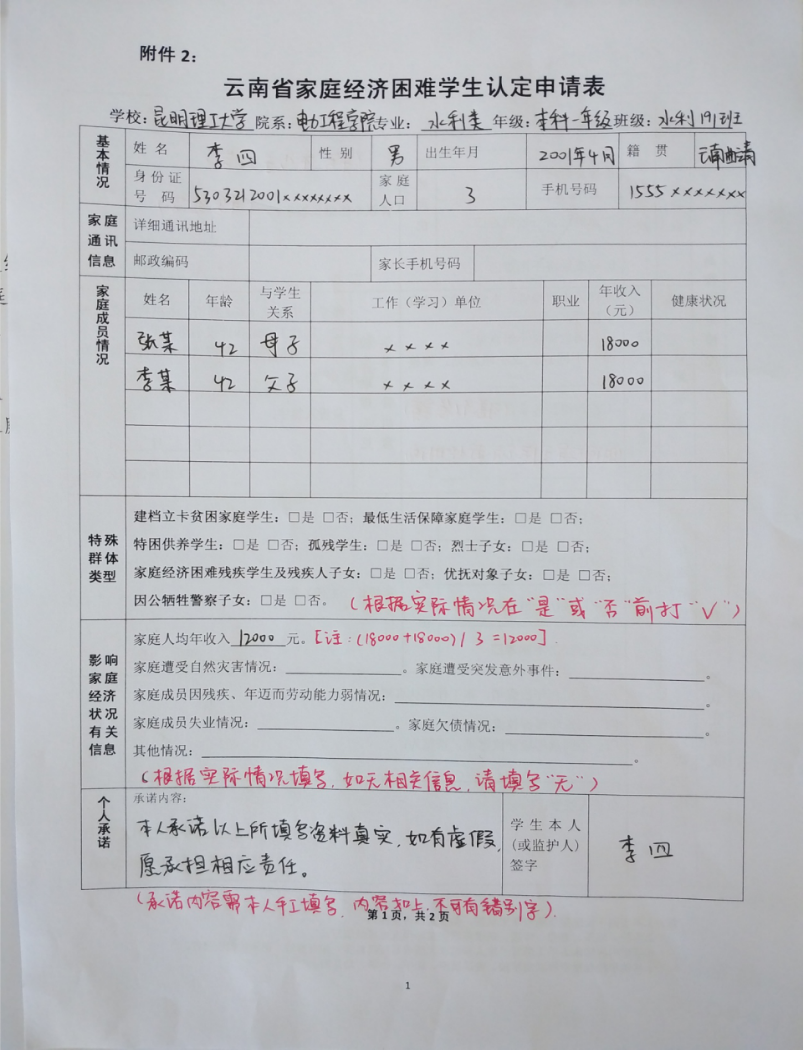 附件 2：
云南省家庭经济困难学生认定申请表
学校：昆明理工大学 院系：电力工程学院 专业： 水利类 年级：本科一年级 班级：水利191班
基本情况
姓 名 李四 性 别 男 出生年月 2001年4月 籍 贯 云南曲靖
身份证号 码 5303212001xxxxxxxx 家庭人口 3 手机号码 1555xxxxxxx
家庭通讯信息
详细通讯地址
邮政编码 家长手机号码
家庭成员情况
姓名 年龄 与学生关系 工作（学习）单位 职业 年收入（元） 健康状况
张某 42 母子 xxxx 18000
李某 42 父子 xxxx 18000
特殊群体类型
建档立卡贫困家庭学生：□是 □否；最低生活保障家庭学生：□是 □否；
特困供养学生：□是 □否；孤残学生：□是 □否；烈士子女：□是 □否；
家庭经济困难残疾学生及残疾人子女：□是 □否；优抚对象子女：□是 □否；
因公牺牲警察子女：□是 □否。（根据实际情况在“是”或“否”前打“√”）
影响家庭经济状况有关信息
家庭人均年收入 12000 元。[注：(18000+18000)/3=12000]
家庭遭受自然灾害情况：。家庭遭受突发意外事件：。
家庭成员因残疾、年迈而劳动能力弱情况：。
家庭成员失业情况：。家庭欠债情况：。
其他情况：。
（根据实际情况填写，如无相关信息，请填写“无”）
个人承诺
承诺内容：
本人承诺以上所填写资料真实，如有虚假，
愿承担相应责任。
学生本人（或监护人）签字
李四
（承诺内容需本人手工填写，内容如上，不可有错别字）.
第 1 页，共 2 页
1